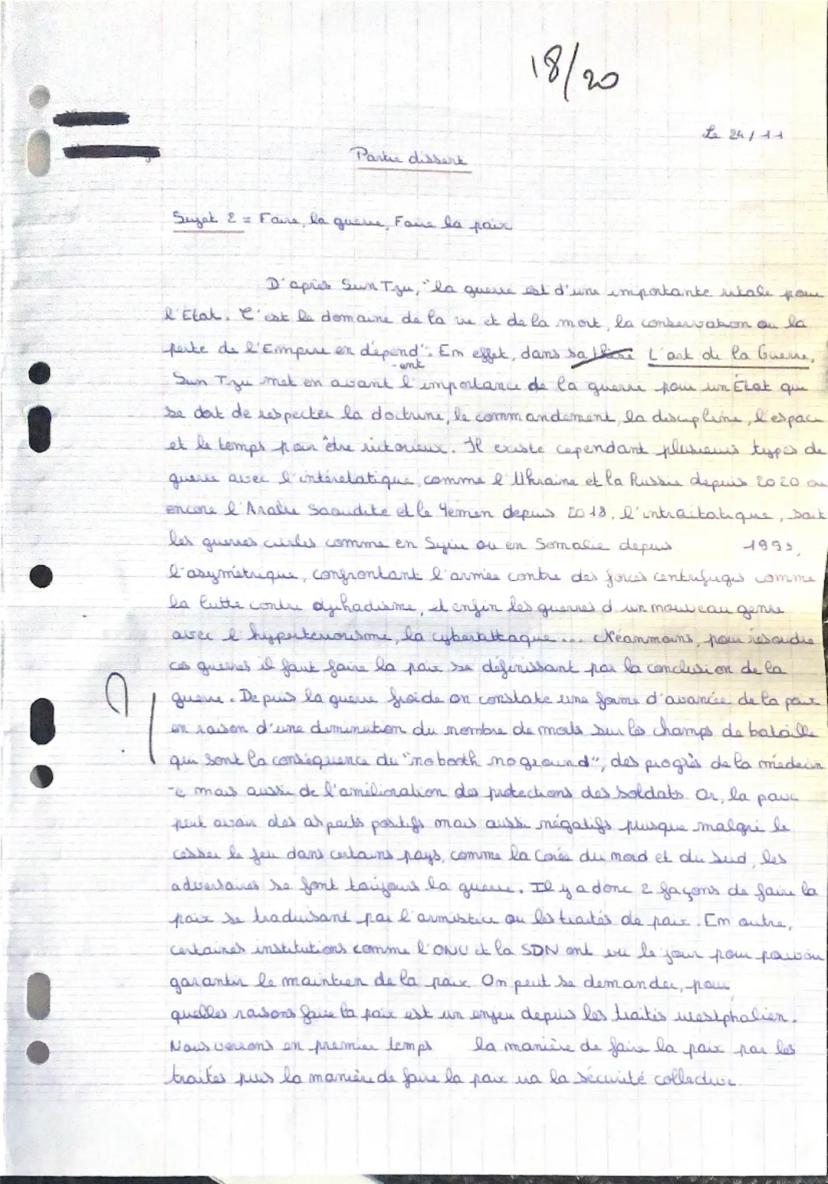 18/20
Le 24/11
Partie dissert
Sujet 2 = Faire, la guerre, Faire la paix
D'après Sun Tzu, "la guerre est d'une importante vitale pour
l'Etat. C'est le domaine de la vie et de la mort, la conservation ou la
perte de l'Empire en dépend". Em effet, dans L'art de la Guerre,
-ent
Sun Tzu met en avant l'importance de la guerre pour un État qui
se doit de respecter la doctrine, le commandement, la discipline, l'espace
et le temps pour être victorieux. Il existe cependant plusieurs types de
guerre avec l'interétatique, comme l'Ukraine et la Russie depuis 2020 ou
encore l'Arabie Saoudite et le Yemen depuis 2018, l'intraétatique, soit
les guerres civiles comme en Syrie ou en Somalie depuis 1991,
l'asymétrique, confrontant l'armée contre des forces centrifuges comme
la lutte contre djihadisme, et enfin les guerres d'un nouveau genre
avec l'hyperterrorisme, la cyberattaque... Néanmoins, pour résoudre
ces guerres il faut faire la paix se définissant par la conclusion de la
guerre. Depuis la guerre froide on constate une forme d'avancée de la paix
?
en raison d'une diminution du nombre de morts sur les champs de bataille
qui sont la conséquence du "no booth no ground", des progrès de la médecin
-e mais aussi de l'amélioration des protections des soldats. Or, la paix
peut avoir des aspects positifs mais aussi négatifs puisque malgré le
cesser le feu dans certains pays, comme la Corée du nord et du Sud, les
adversaires se font toujours la guerre. Il y a donc 2 façons de faire la
paix se traduisant par l'armistice ou les traités de paix. Em outre,
certaines institutions comme l'ONU et la SDN ont vu le jour pour pouvoir
garantir le maintien de la paix. On peut se demander, pour
quelles raisons faire la paix est un enjeu depuis les traités westphalien.
Nous verrons en premier temps la manière de faire la paix par les
traités puis la manière de faire la paix via la sécurité collective.